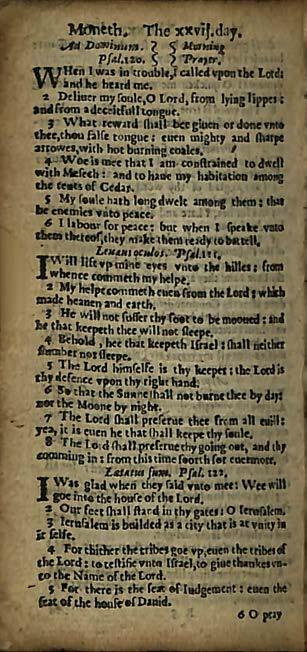 Moneth. The xxvij.day.
Ad Dominum. Morning
Psal.120. Prayer.
WHen I was in trouble,I called vpon the Lord:
and he heard me.
2 Deliuer my soule,O Lord, from lying lippes:
and from a deceitfull tongue.
3 What reward shall bee giuen or done vnto
thee,thou false tongue: euen mighty and sharpe
arrowes,with hot burning coales.
4 Woe is mee that I am constrained to dwell
with Mesech: and to haue my habitation among
the tents of Cedar.
5 My soule hath long dwelt among them: that
be enemies vnto peace.
6 I labour for peace: but when I speake vnto
them thereof,they make them ready to battell.
Leuaui oculos. Psal.121.
I Will lift vp mine eyes vnto the hilles: from
whence commeth my helpe.
2 My helpe commeth euen from the Lord: which
made heauen and earth.
3 He will not suffer thy foot to be mooued: and
he that keepeth thee will not sleepe.
4 Behold, hee that keepeth Israel: shall neither
slumber nor sleepe.
5 The Lord himselfe is thy keeper: the Lord is
thy defence vpon thy right hand.
6 So that the Sunne shall not burne thee by day:
nor the Moone by night.
7 The Lord shall preserue thee from all euill:
yea, it is euen he that shall keepe thy soule.
8 The Lord shall preserue thy going out, and thy
comming in: from this time foorth for euermore.
Lætatus sum. Psal. 122.
I Was glad when they said vnto mee: Wee will
goe into the house of the Lord.
2 Our feet shall stand in thy gates: O Ierusalem.
3 Ierusalem is builded as a city that is at vnity in
it selfe.
4 For thither the tribes goe vp,euen the tribes of
the Lord: to testifie vnto Israel,to giue thankes vn-
to the Name of the Lord.
5 For there is the seat of Iudgement: euen the
seat of the house of Dauid.
6 O pray